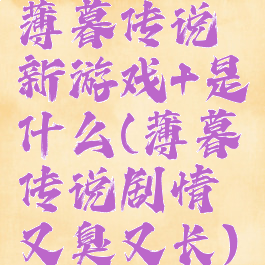 薄暮传说
新游戏+是
什么(薄暮
传说剧情
又臭又长)